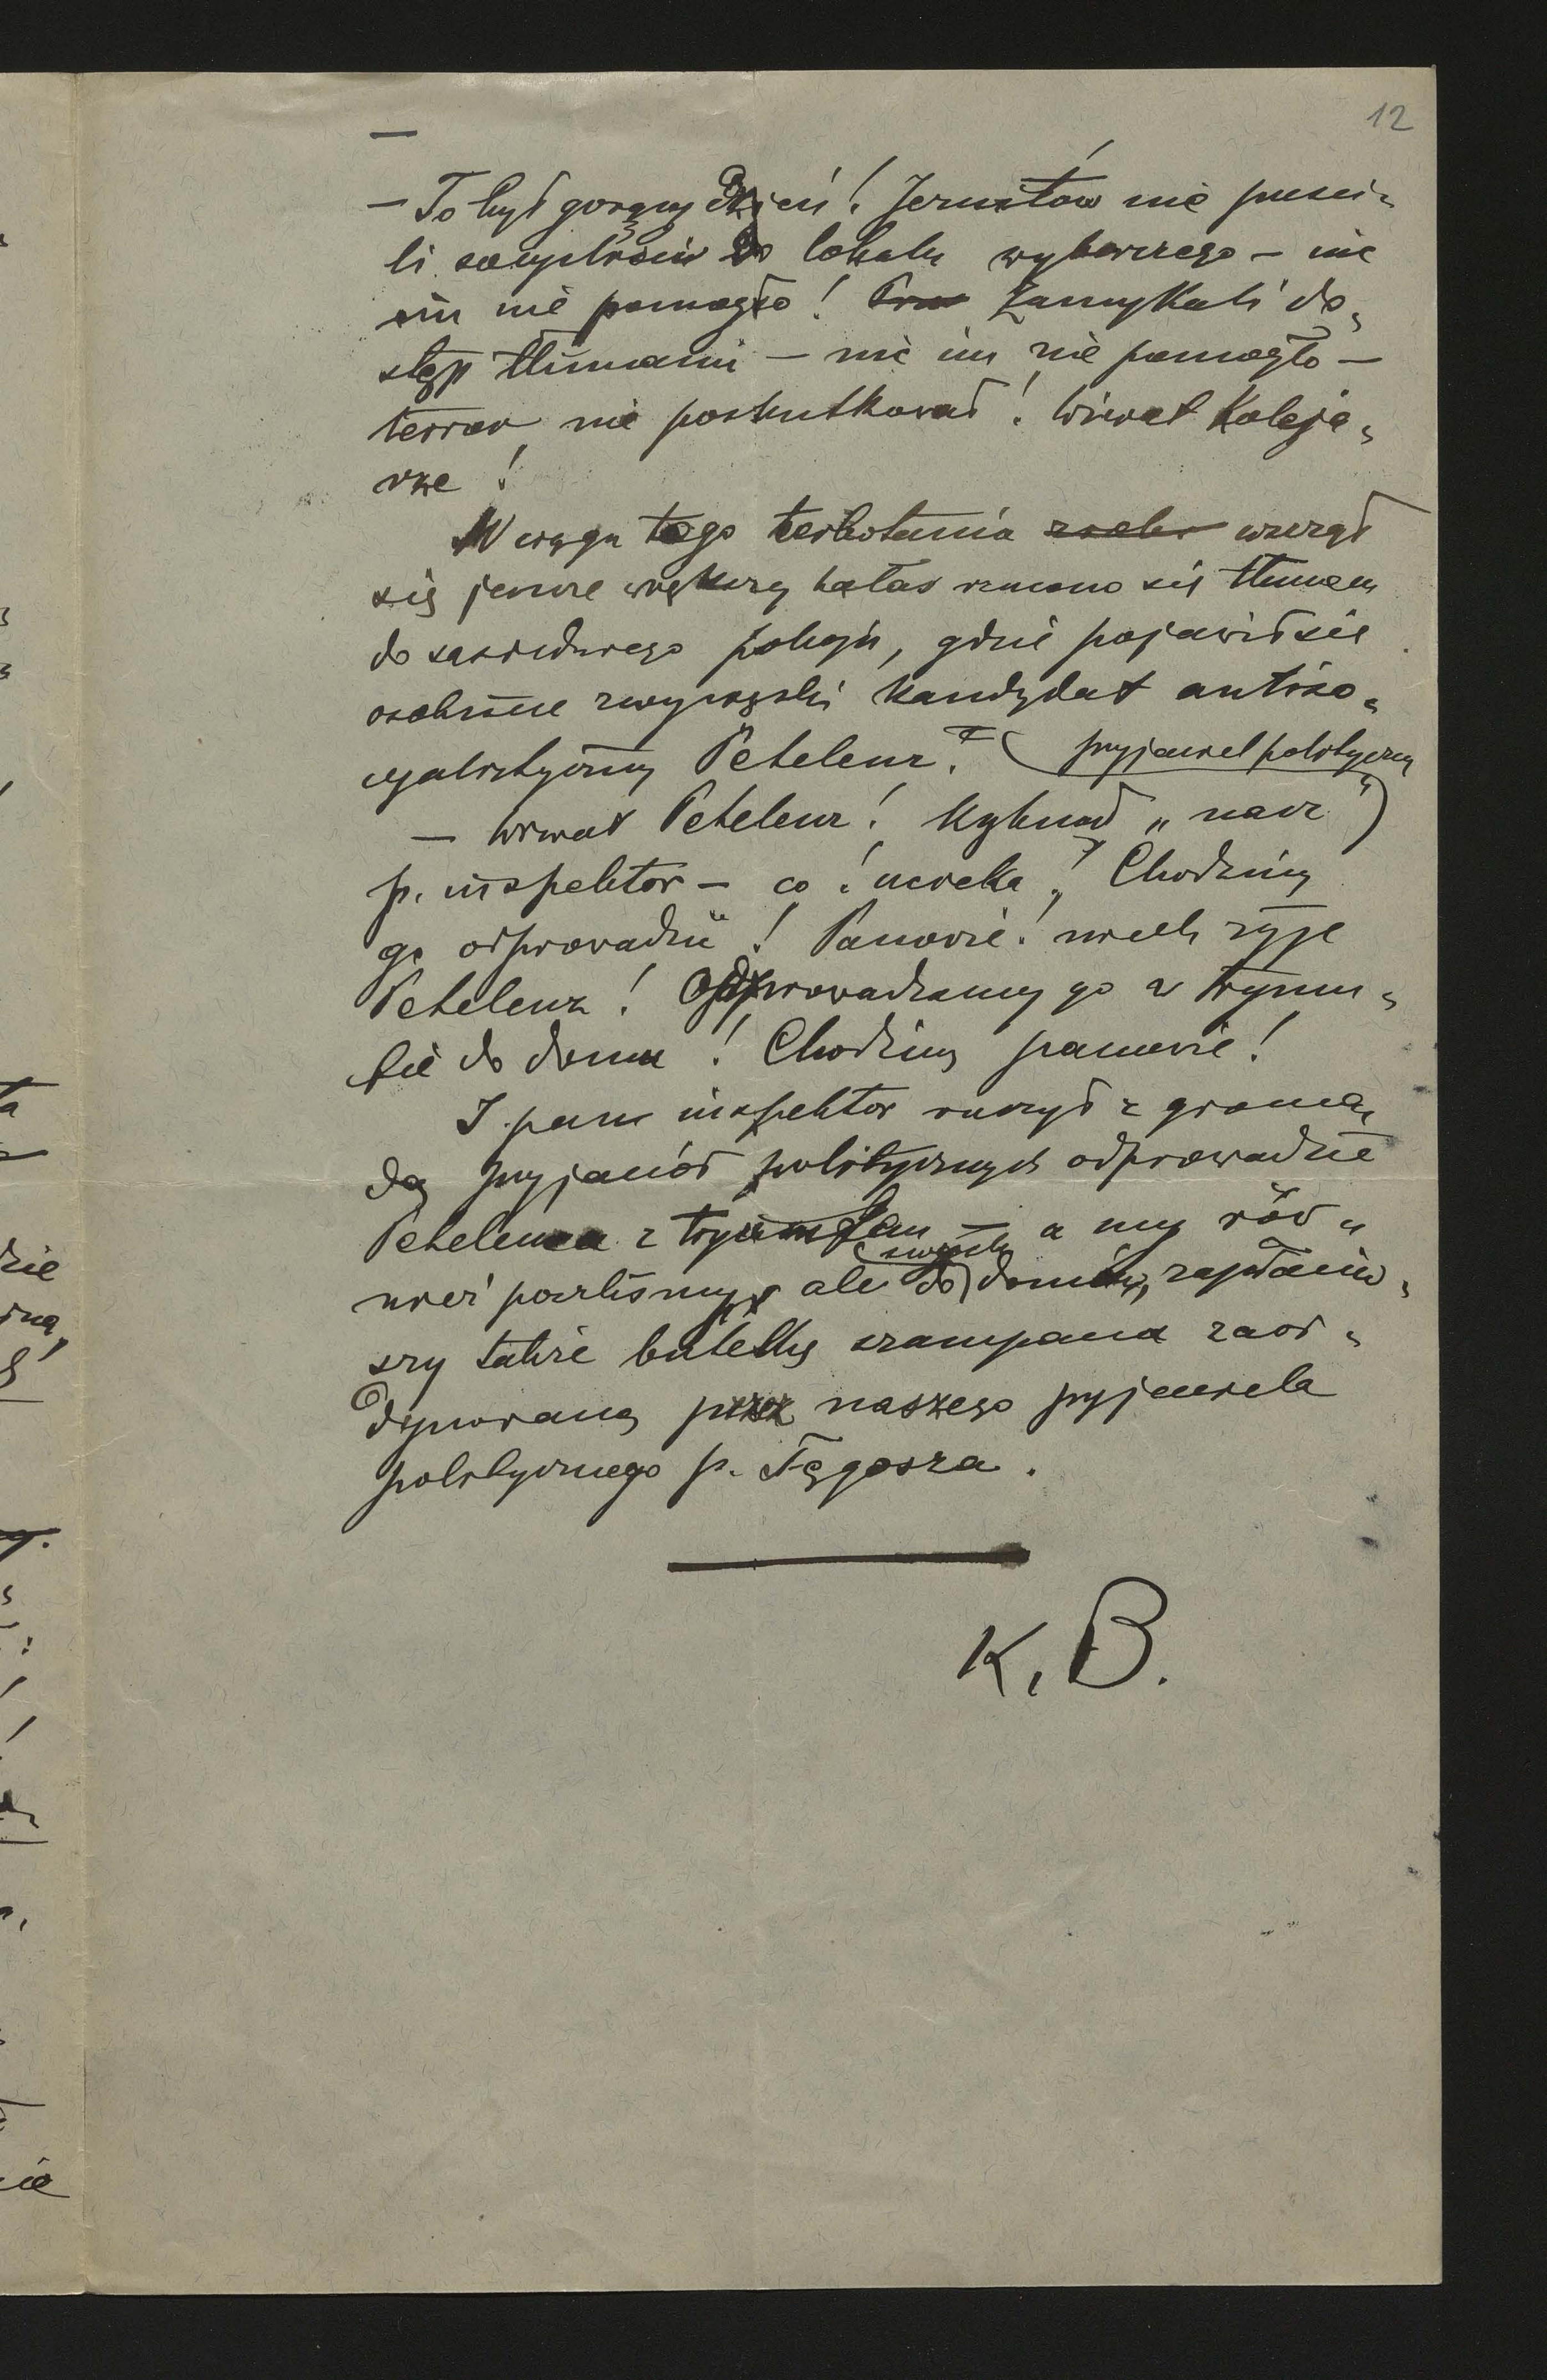 12
—
— To był gorący dzień! Jezuitów nie puści-
li socyaliści do lokalu wyborczego — nic
im nie pomogło! Zamykali do-
stęp tłumami — nic im nie pomogło —
terror nie poskutkował! Wiwat Koleja-
rze!
W ciągu tego wszczął
się jeszcze większy hałas rzucono się tłumem
do sąsiedniego pokoju, gdzie pojawił się
osobiście zwycięski kandydat antiso-
cyalistyczny Petelenz. (przyjaciel polityczny)
— Wiwat Petelenz! Krzyknął „nasz"
p. inspektor — co! ucieka! Chodźmy
go odprowadzić! Panowie! niech żyje
Petelenz! Odprowadzamy go w tryum-
fie do domu! Chodźmy panowie!
I pan inspektor ruszył z groma-
dą przyjaciół politycznych odprowadzić
Petelenza z tryumfem — a my rów-
nież poszliśmy, ale do swoich domów, zapłaciw-
szy także butelkę szampana zaor-
dynowaną przez naszego przyjaciela
politycznego p. Tęgosza.
K. B.